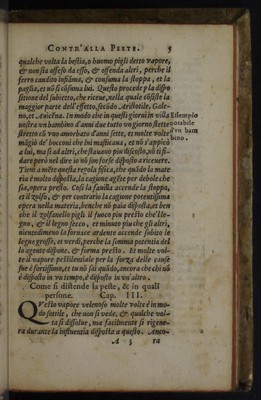 CONTR'ALLA PESTE. 5
qualche volta la bestia, o huomo pigli detto vapore,
& non sia offeso da esso, & offenda altri, perche il
ferro candito infiãma, & consuma la stoppa, et la
paglia, et nõ si cõsuma lui. Questo procede p la dispo
sitione del subietto, che riceue, nella quale cõsiste la
maggior parte dell'effetto, secõdo Aristotile, Gale-
no, et Auicena. in modo che in questi giorni in villa
nostra vn bambino d'anni due tutto vn giorno stette
stretto cõ vno amorbato d'anni sette, et molte volte
māgiò de' bocconi che lui masticaua, et nõ s'appicò
a lui, ma sì ad altri, che stauano piu discosto, nõ ti fi-
dare però nel dire io nõ son forse disposto a riceuere.
Tieni a mẽte questa regola fisica, che quãdo la mate
ria è molto disposta, la cagione agẽte per debole che
sia, opera presto. Così la fauilla accende la stoppa,
et il zolfo, & per contrario la cagione potentissima
opera nella materia, benche nõ paia disposta, et ben
che il zolfanello pigli il fuoco piu presto che'l le-
gno, & il legno secco, et minuto piu che gli altri,
nientedimeno la fornace ardente accende subito le
legne grosse, et verdi, perche la somma potentia del
lo agente dispone, & forma presto. Et molte vol-
te il vapore pestilentiale per la forza delle cause
sue è fortissimo, et tu nõ sai quãdo, ancora che chi nõ
è disposto in vn tempo, è disposto in vn'altro.
Esempio
notabile
d'vn bam
bino.
Come si distende la peste, & in quali
persone. Cap. III.
QVesto vapore velenoso molte volte è in mo-
do sottile, che non si vede, & qualche vol-
ta si dissolue, ma facilmente si rigene-
ra durante la influentia disposta a questo. Anco-
A 3 ra